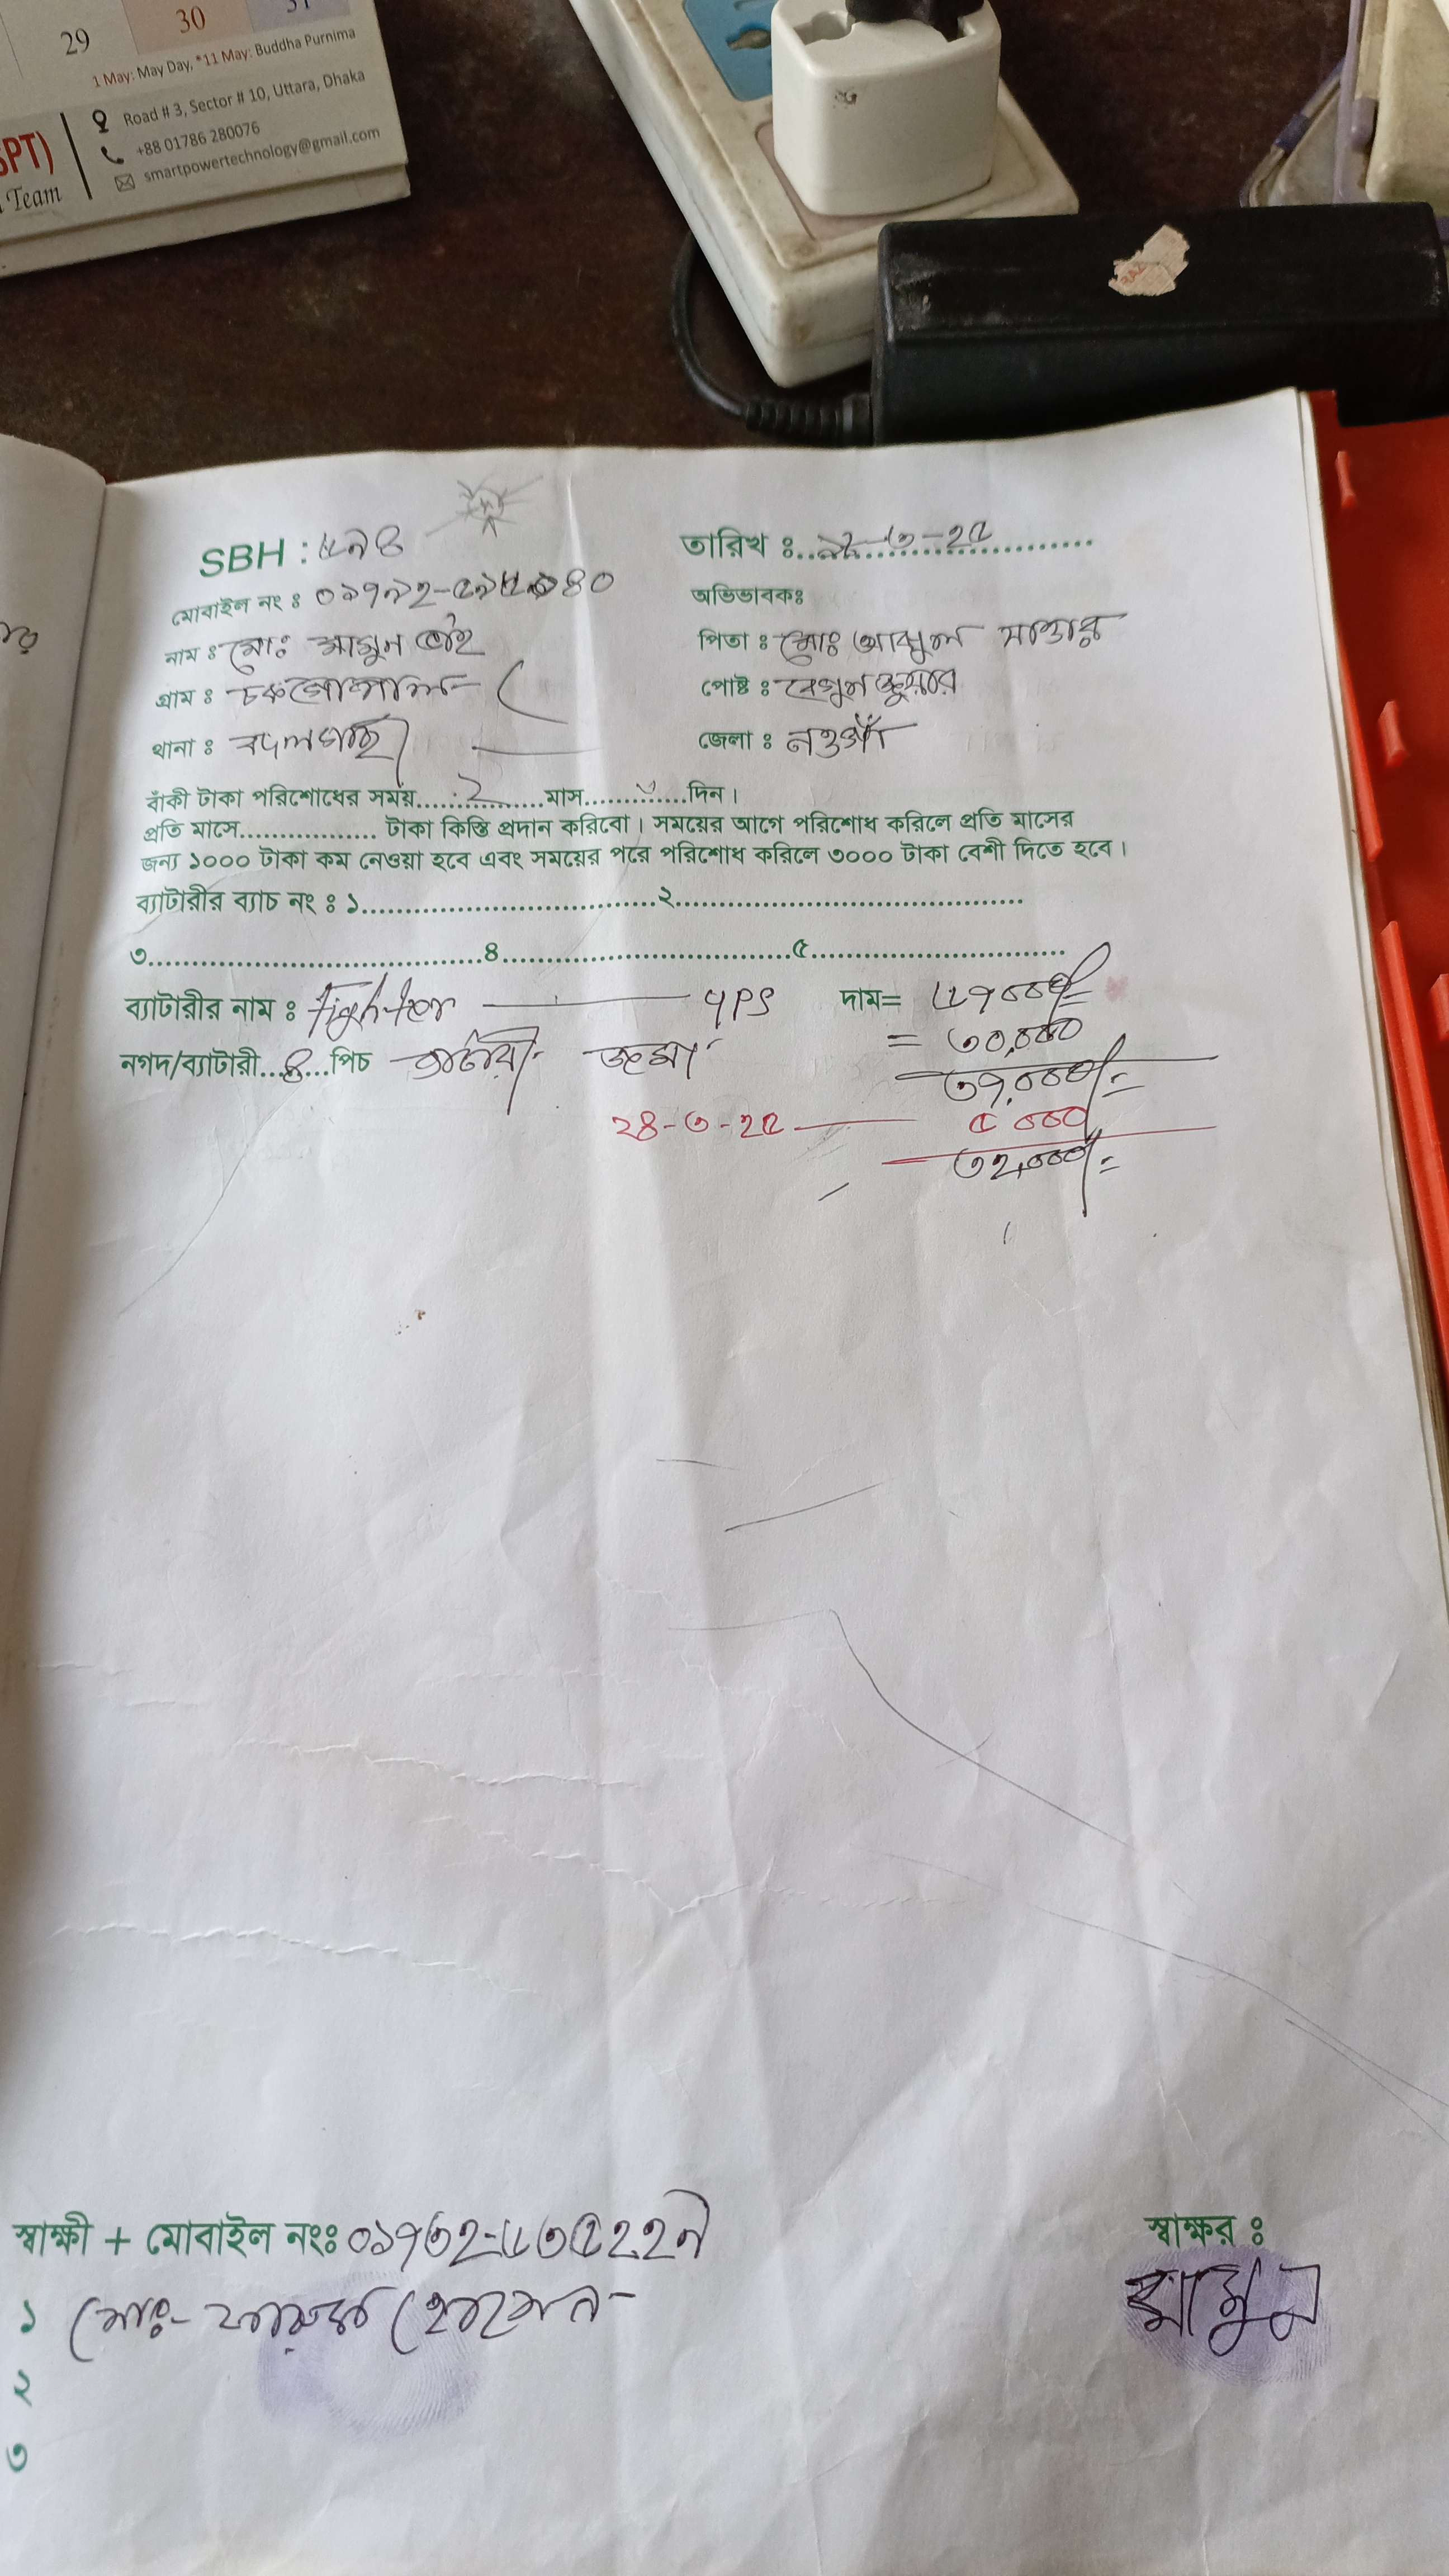 29 30 31
1 May: May Day, *11 May: Buddha Purnima
SPT)
Team
Road # 3, Sector # 10, Uttara, Dhaka
+88 01786 280076
smartpowertechnology@gmail.com
SBH :
তারিখ : -৩-২৫
মোবাইল নং :
অভিভাবকঃ
নাম : মোঃ মামুন
পিতা : মোঃ আব্দুল সাত্তার
গ্রাম : চকগোপাল
পোষ্ট :
থানা : বদলগাছী
জেলা : নওগাঁ
বাঁকী টাকা পরিশোধের সময়.....২.....মাস..........দিন।
প্রতি মাসে................ টাকা কিস্তি প্রদান করিবো। সময়ের আগে পরিশোধ করিলে প্রতি মাসের
জন্য ১০০০ টাকা কম নেওয়া হবে এবং সময়ের পরে পরিশোধ করিলে ৩০০০ টাকা বেশী দিতে হবে।
ব্যাটারীর ব্যাচ নং : ১..................................২........................................
৩......................................৪..................................৫..............................
ব্যাটারীর নাম : Fighter — 4PS দাম= ৬৭০০০/=
নগদ/ব্যাটারী...৪...পিচ ব্যাটারী জমা = ৩০,০০০
৩৭,০০০/=
২৪-৩-২৫ — ৫০০০
৩২,০০০/=
স্বাক্ষী + মোবাইল নংঃ
স্বাক্ষর :
১ মোঃ হোসেন
মামুন
২
৩